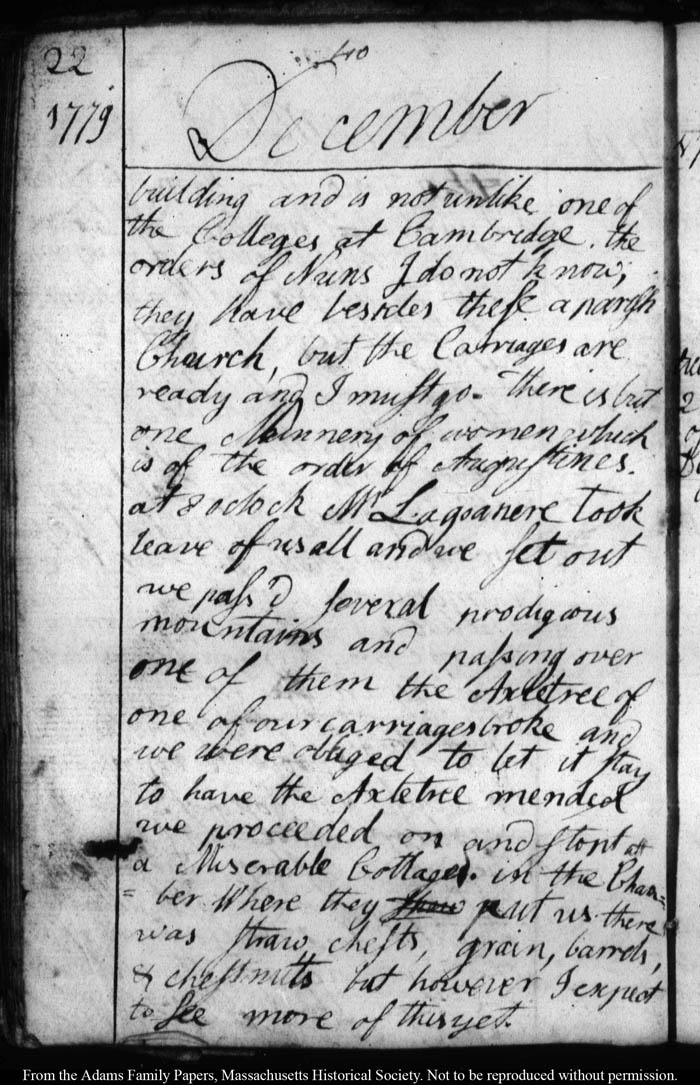 22
40
1779
December
building and is not unlike one of
the Colleges at Cambridge. the
orders of Nuns I do not know,
they have besides these a parish
Church, but the Carriages are
ready and I must go. there is but
one Nunnery of women which
is of the order of Augustines.
at 8 oclock Mr Lagoanere took
leave of us all and we set out
we pass'd several prodigious
mountains and passing over
one of them the Axletree of
one of our carriages broke and
we were obliged to let it stay
to have the Axletree mended
we proceeded on and stopt att
a Miserable Cottage. in the Cham=
=ber Where they put us there
was straw, chests, grain, barrels,
& chestnuts but however I expect
to see more of this yet.
From the Adams Family Papers, Massachusetts Historical Society. Not to be reproduced without permission.